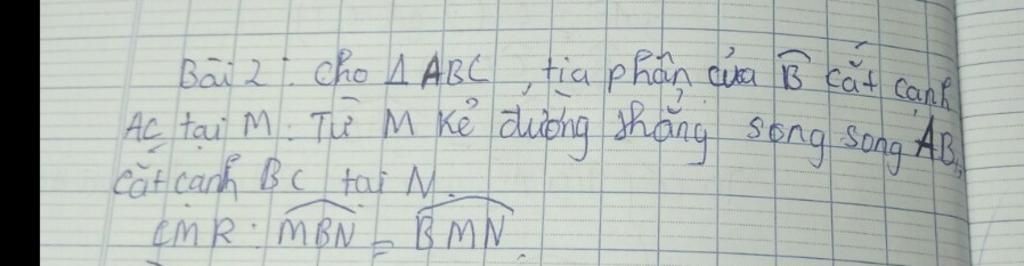 Bài 2: Cho Δ ABC, tia phân của B̂ cắt cạnh
AC tại M. Từ M kẻ đường thẳng song song AB,
cắt cạnh BC tại N.
CMR: \widehat{MBN} = \widehat{BMN}.